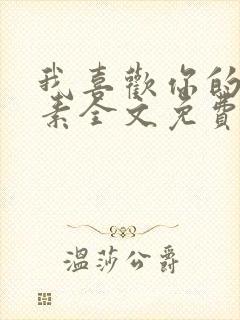 我喜歡你的
素全文免費
溫莎公爵